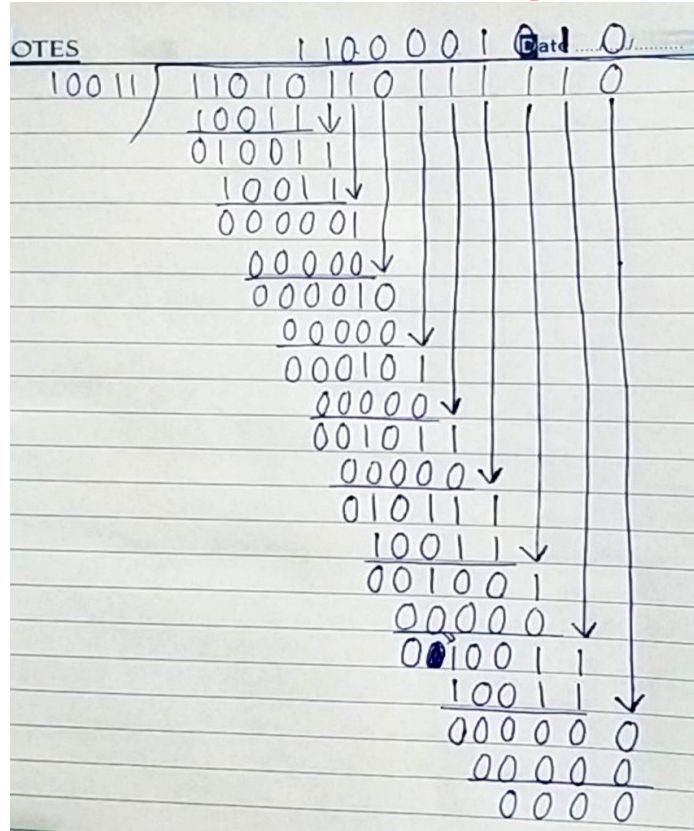 OTES
1 1 0 0 0 0 1 0 1 0
Date ....../....../............
10011 ) 1 1 0 1 0 1 1 0 1 1 1 1 1 0
1 0 0 1 1
0 1 0 0 1 1
1 0 0 1 1
0 0 0 0 0 1
0 0 0 0 0
0 0 0 0 1 0
0 0 0 0 0
0 0 0 1 0 1
0 0 0 0 0
0 0 1 0 1 1
0 0 0 0 0
0 1 0 1 1 1
1 0 0 1 1
0 0 1 0 0 1
0 0 0 0 0
0 0 1 0 0 1 1
1 0 0 1 1
0 0 0 0 0 0
0 0 0 0 0
0 0 0 0